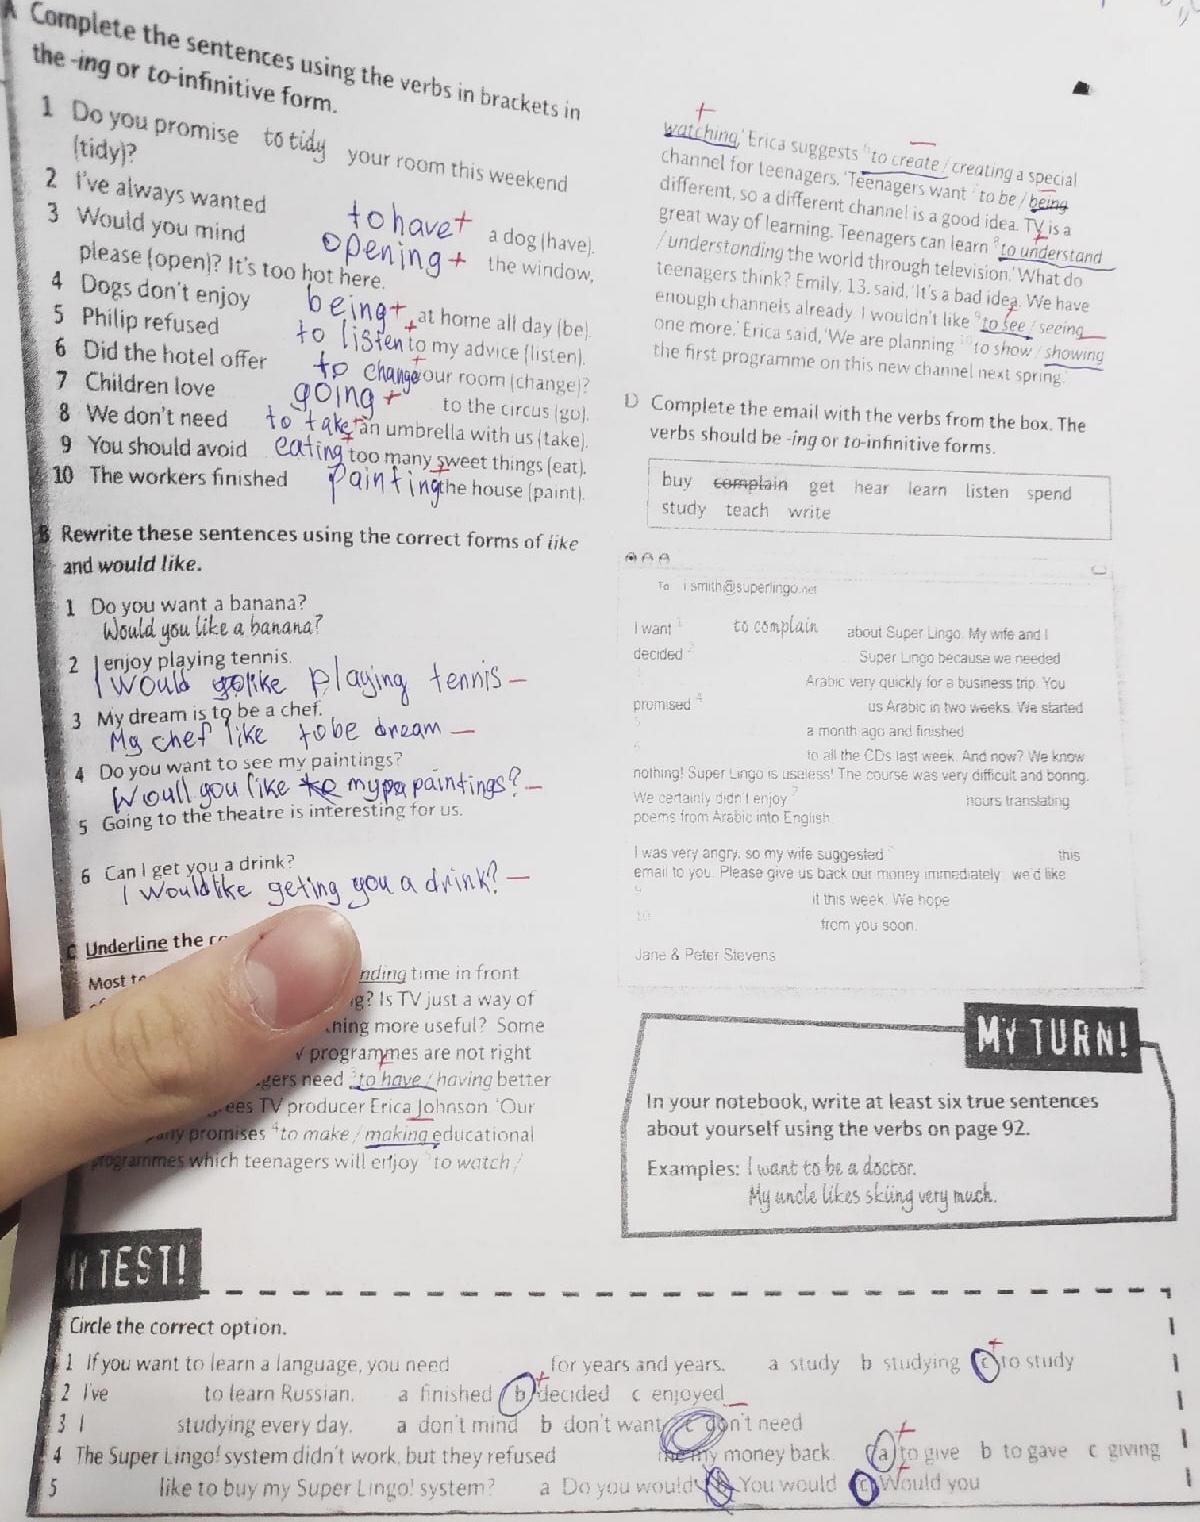 A Complete the sentences using the verbs in brackets in
the -ing or to-infinitive form.
1 Do you promise to tidy your room this weekend
(tidy)?
2 I've always wanted to have + a dog (have).
3 Would you mind opening + the window,
please (open)? It's too hot here.
4 Dogs don't enjoy being + at home all day (be).
5 Philip refused to listen + to my advice (listen).
6 Did the hotel offer to change + our room (change)?
7 Children love going + to the circus (go).
8 We don't need to take + an umbrella with us (take).
9 You should avoid eating + too many sweet things (eat).
10 The workers finished painting + the house (paint).
B Rewrite these sentences using the correct forms of like
and would like.
1 Do you want a banana?
Would you like a banana?
2 I enjoy playing tennis.
I would like playing tennis –
3 My dream is to be a chef.
My chef like to be dream –
4 Do you want to see my paintings?
Woull you like my paintings? –
5 Going to the theatre is interesting for us.
6 Can I get you a drink?
I Would like geting you a drink? –
C Underline the
Most
nding time in front
g? Is TV just a way of
hing more useful? Some
programmes are not right
gers need 3 to have / having better
ees TV producer Erica Johnson. 'Our
any promises 4 to make / making educational
programmes which teenagers will enjoy 5 to watch /
watching,' Erica suggests 6 to create / creating a special
channel for teenagers. 'Teenagers want 7 to be / being
different, so a different channel is a good idea. TV is a
great way of learning. Teenagers can learn 8 to understand
/ understanding the world through television.' What do
teenagers think? Emily, 13, said, 'It's a bad idea. We have
enough channels already. I wouldn't like 9 to see / seeing
one more.' Erica said, 'We are planning 10 to show / showing
the first programme on this new channel next spring.'
D Complete the email with the verbs from the box. The
verbs should be -ing or to-infinitive forms.
buy complain get hear learn listen spend
study teach write
To i smith@superlingo.net
I want 1 to complain about Super Lingo. My wife and I
decided 2 Super Lingo because we needed
3 Arabic very quickly for a business trip. You
promised 4 us Arabic in two weeks. We started
5 a month ago and finished
6 to all the CDs last week. And now? We know
nothing! Super Lingo is useless! The course was very difficult and boring.
We certainly didn't enjoy 7 hours translating
poems from Arabic into English.
I was very angry, so my wife suggested 8 this
email to you. Please give us back our money immediately: we'd like
9 it this week. We hope
10 from you soon.
Jane & Peter Stevens
MY TURN!
In your notebook, write at least six true sentences
about yourself using the verbs on page 92.
Examples: I want to be a doctor.
My uncle likes skiing very much.
MY TEST!
Circle the correct option.
1 If you want to learn a language, you need for years and years. a study b studying c to study
2 I've to learn Russian. a finished b decided c enjoyed
3 I studying every day. a don't mind b don't want c don't need
4 The Super Lingo! system didn't work, but they refused me my money back. a to give b to gave c giving
5 like to buy my Super Lingo! system? a Do you would b You would c Would you